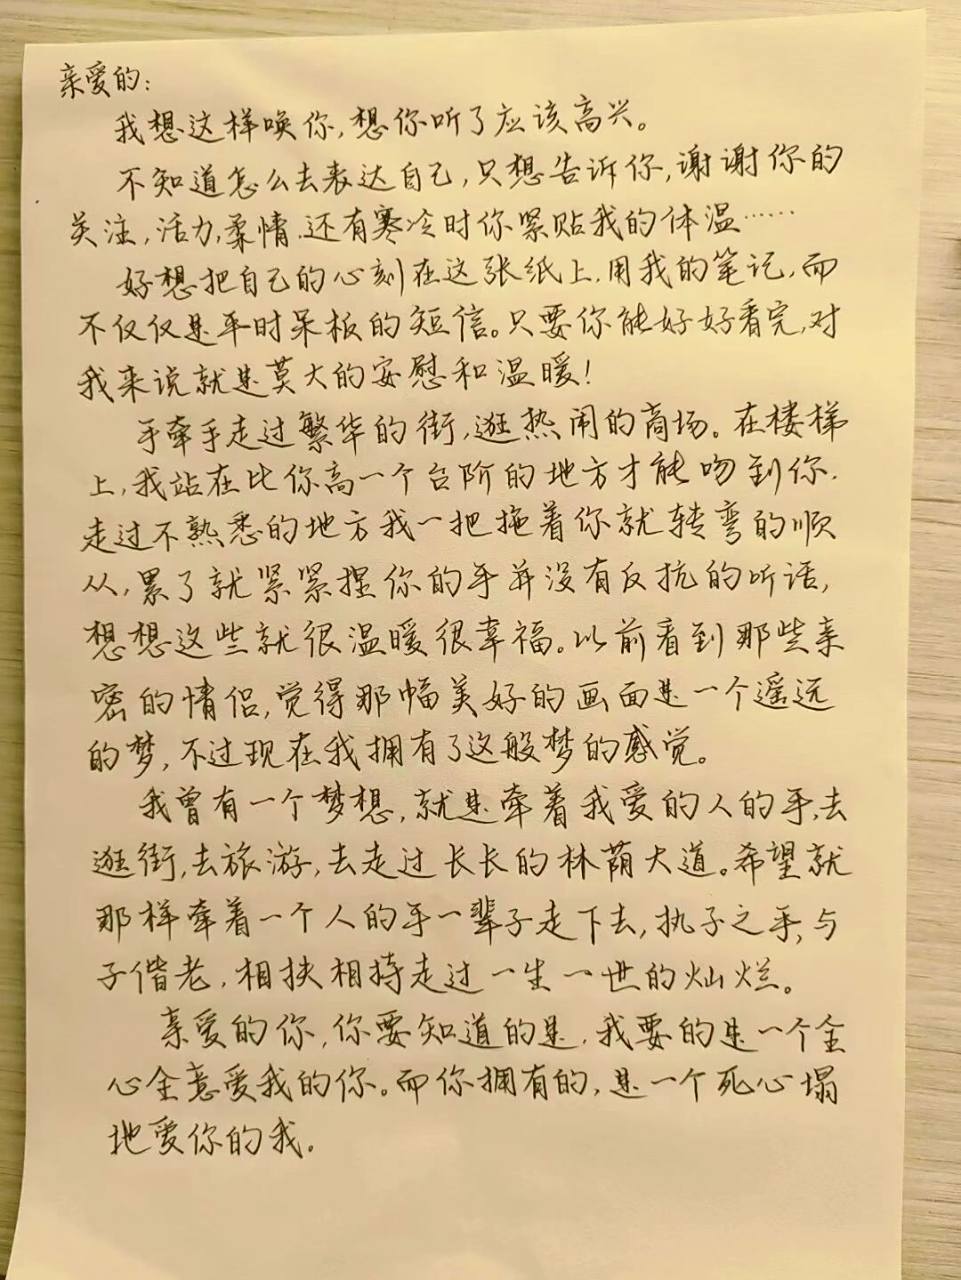 亲爱的:
我想这样唤你,想你听了应该高兴。
不知道怎么去表达自己,只想告诉你,谢谢你的
关注,活力,柔情.还有寒冷时你紧贴我的体温……
好想把自己的心刻在这张纸上,用我的笔记,而
不仅仅是平时呆板的短信。只要你能好好看完,对
我来说就是莫大的安慰和温暖!
手牵手走过繁华的街,逛热闹的商场。在楼梯
上,我站在比你高一个台阶的地方才能吻到你.
走过不熟悉的地方我一把拖着你就转弯的顺
从,累了就紧紧捏你的手并没有反抗的听话,
想想这些就很温暖很幸福。以前看到那些亲
密的情侣,觉得那幅美好的画面是一个遥远
的梦,不过现在我拥有了这般梦的感觉。
我曾有一个梦想,就是牵着我爱的人的手,去
逛街,去旅游,去走过长长的林荫大道。希望就
那样牵着一个人的手一辈子走下去,执子之手,与
子偕老,相扶相持走过一生一世的灿烂。
亲爱的你,你要知道的是,我要的是一个全
心全意爱我的你。而你拥有的,是一个死心塌
地爱你的我。